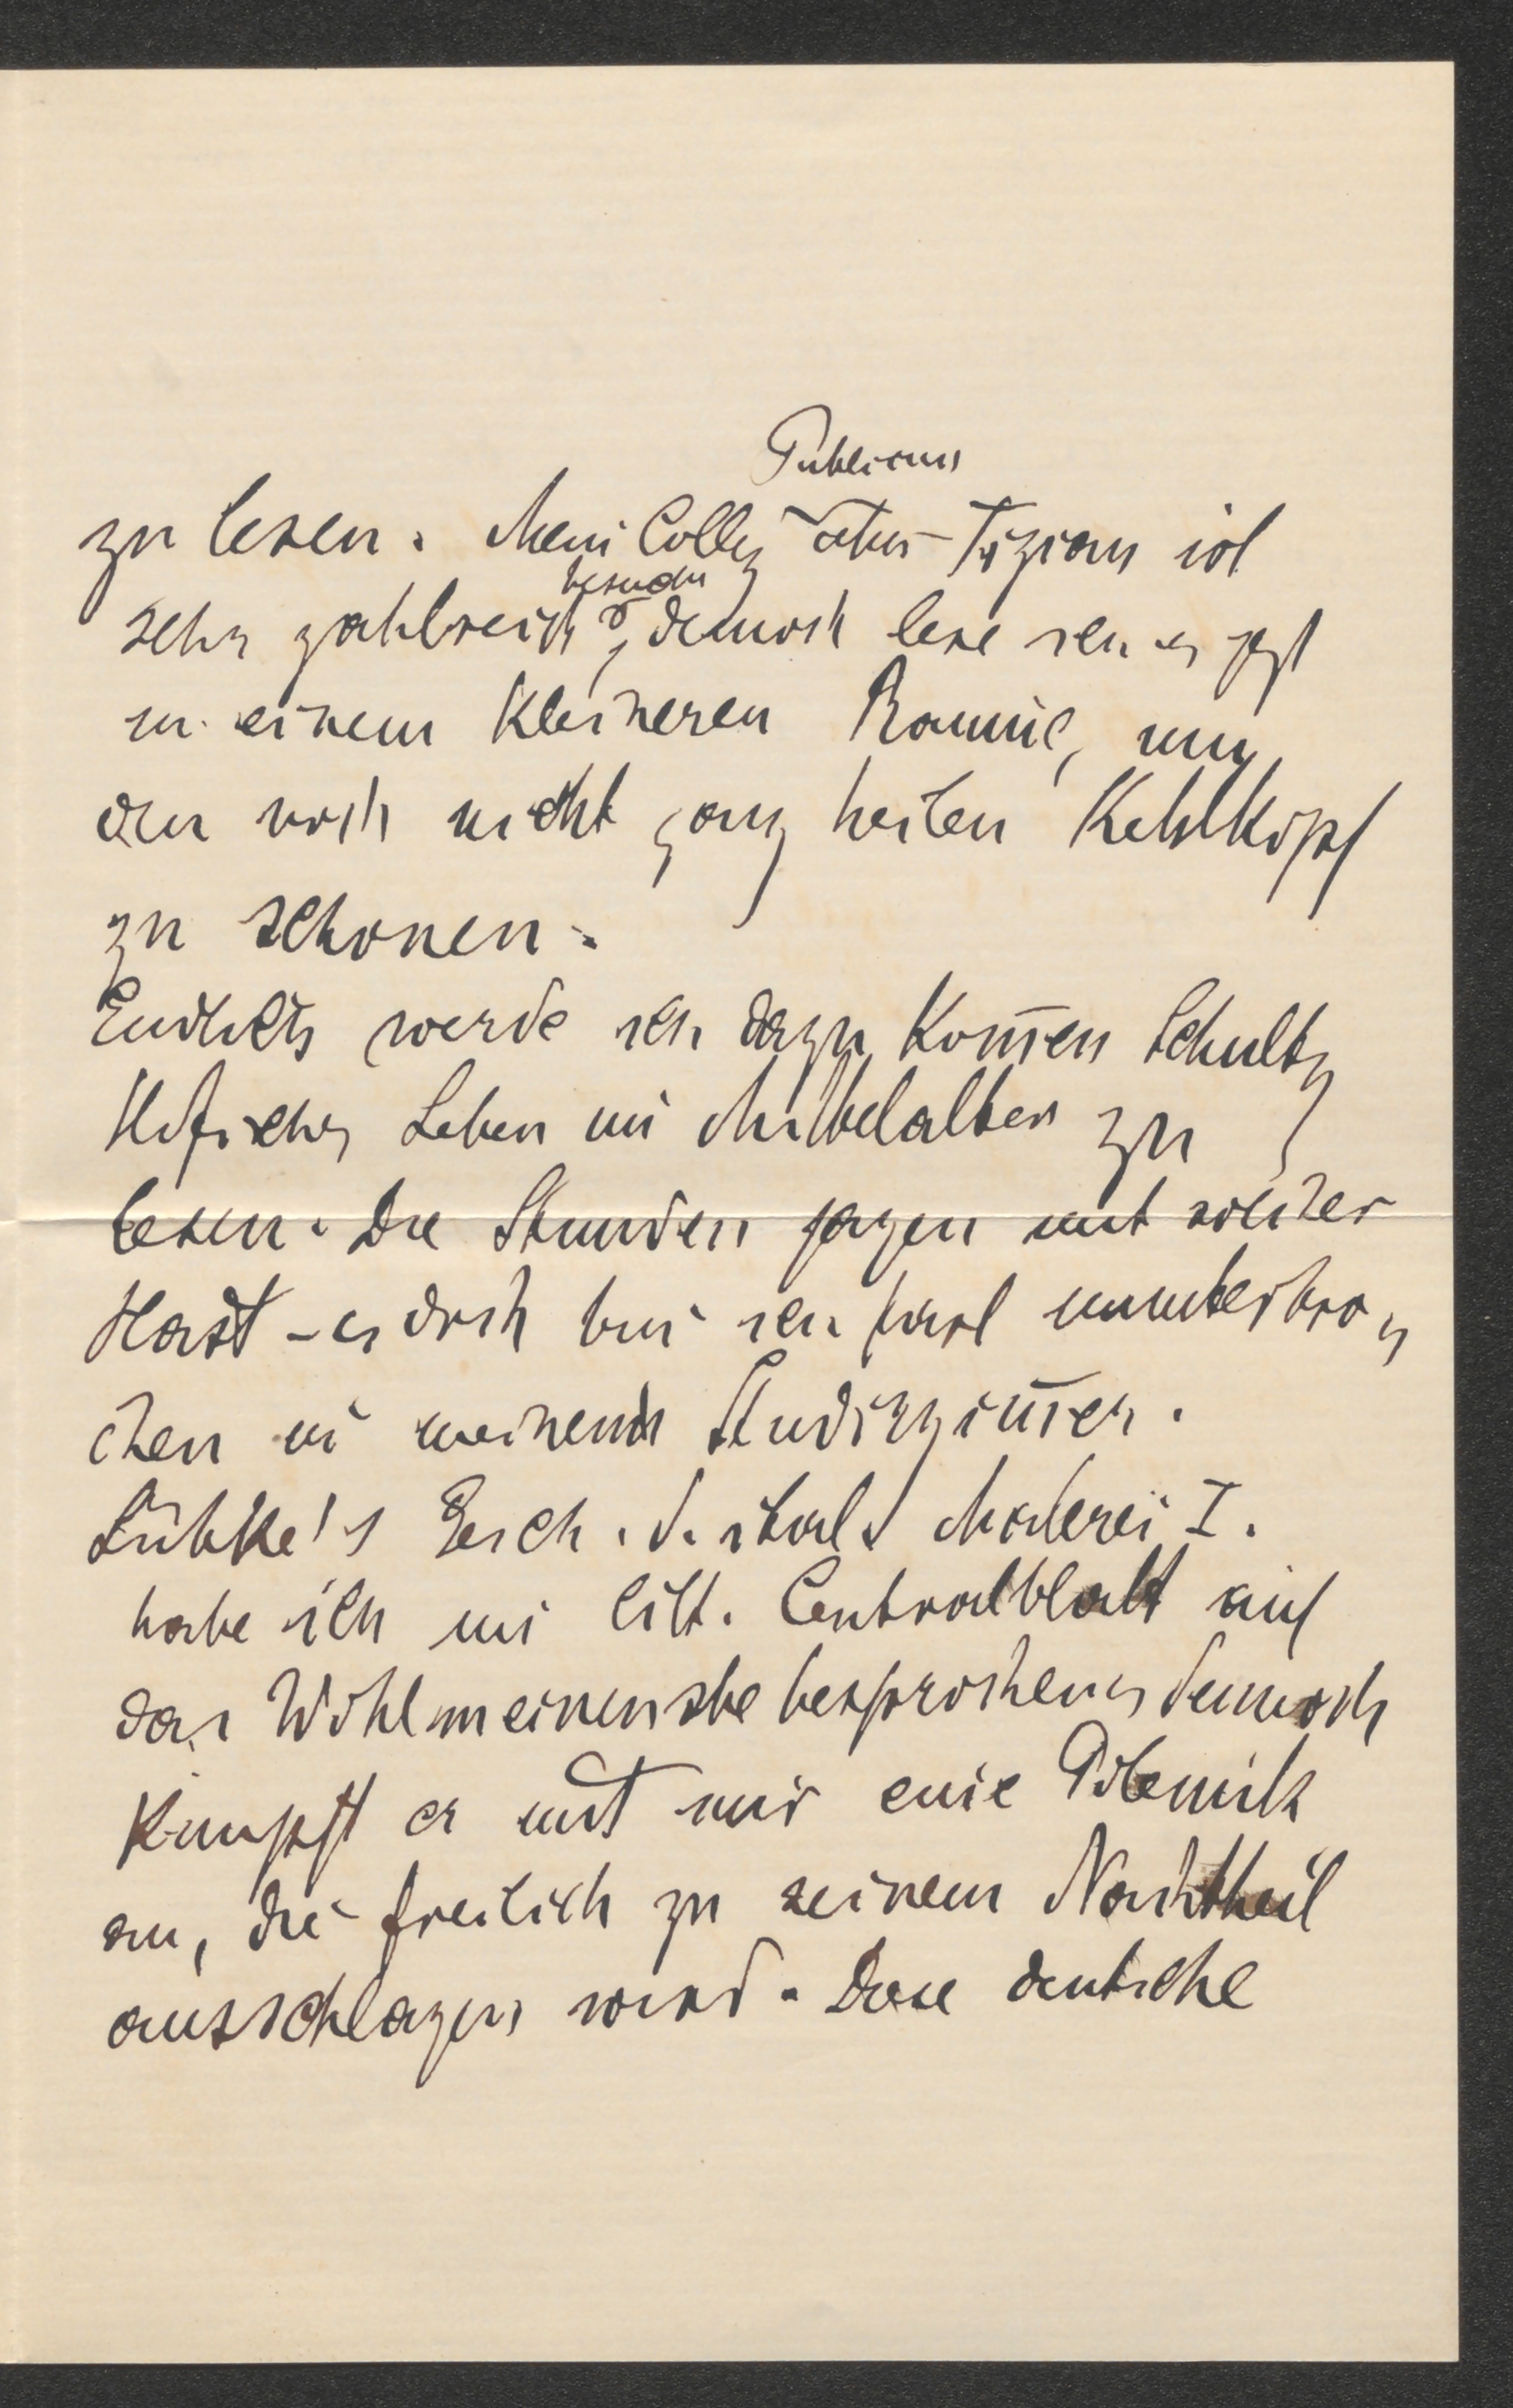 Publicum
zu lesen. Mein Colleg über Tizian ist
besucht
sehr zahlreich, dennoch lese ich es jetzt
in einem kleineren Raume, um
den noch nicht ganz heilen Kehlkopf
zu schonen.
Endlich werde ich dazu kom̅en Schultz
Höfisches Leben im Mittelalter zu
lesen. Die Stunden jagen mit solcher
Hast – es doch bin ich fast ununterbro-
chen in meinem Studirzim̅er.
Lübke's Gesch. d. ital. Malerei I.
habe ich im litt. Centralblatt auf
das Wohlmeinenste besprochen, dennoch
knüpft er mit mir eine Polemik
an, die freilich zu seinem Nachtheil
ausschlagen wird. Diese deutsche